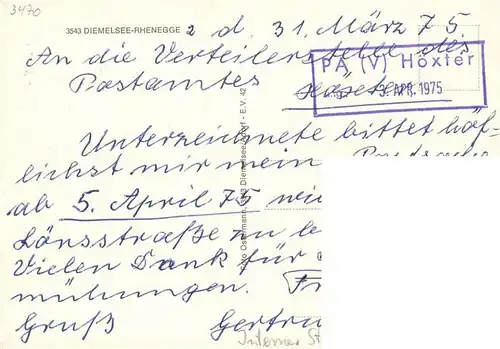 3470
3543 DIEMELSEE-RHENEGGE 2 d. 31. März 75
An die Verteilerstelle des
Postamtes Höxter
PA (V) Höxter
3. APR. 1975
Unterzeichnete bittet höf-
lichst mir mein
ab 5. April 75 wie
Lönsstraße zu
Vielen Dank für
mühungen.
Gruß Gertru
Otto Ostermann, 3543 Diemelsee-Adorf - E.V. 42